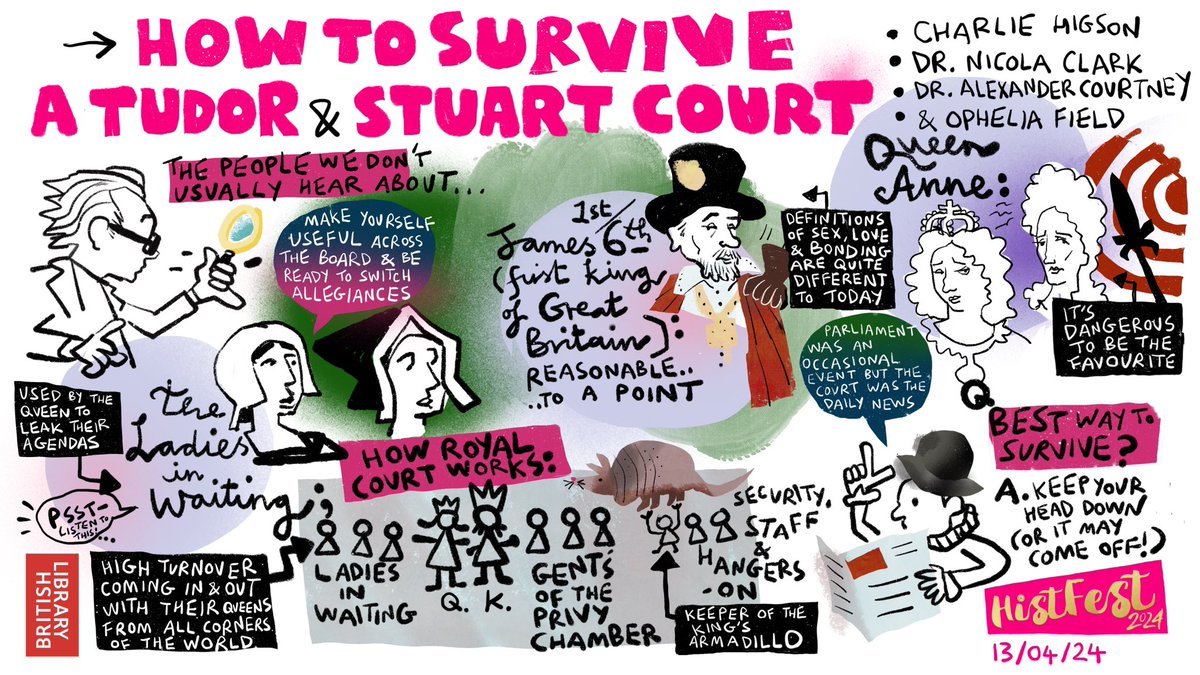 → HOW TO SURVIVE
A TUDOR & STUART COURT
• CHARLIE HIGSON
• DR. NICOLA CLARK
• DR. ALEXANDER COURTNEY
• & OPHELIA FIELD
THE PEOPLE WE DON'T
USUALLY HEAR ABOUT...
MAKE YOURSELF
USEFUL ACROSS
THE BOARD & BE
READY TO SWITCH
ALLEGIANCES
USED BY THE
QUEEN TO
LEAK THEIR
AGENDAS
the
Ladies
in
Waiting:
PSST-
LISTEN TO
THIS!
HIGH TURNOVER
COMING IN & OUT
WITH THEIR QUEENS
FROM ALL CORNERS
OF THE WORLD
1st/6th
James
(first king
of Great
Britain):
REASONABLE..
..TO A POINT
DEFINITIONS
OF SEX, LOVE
& BONDING
ARE QUITE
DIFFERENT
TO TODAY
Queen
Anne:
IT'S
DANGEROUS
TO BE THE
FAVOURITE
PARLIAMENT
WAS AN
OCCASIONAL
EVENT BUT THE
COURT WAS THE
DAILY NEWS
HOW ROYAL
COURT WORKS:
LADIES
IN
WAITING
Q. K.
GENTS
OF THE
PRIVY
CHAMBER
SECURITY,
STAFF
&
HANGERS
-ON
KEEPER OF THE
KING'S
ARMADILLO
BEST WAY TO
SURVIVE?
A. KEEP YOUR
HEAD DOWN
(OR IT MAY
COME OFF!)
BRITISH
LIBRARY
HistFest
2024
13/04/24